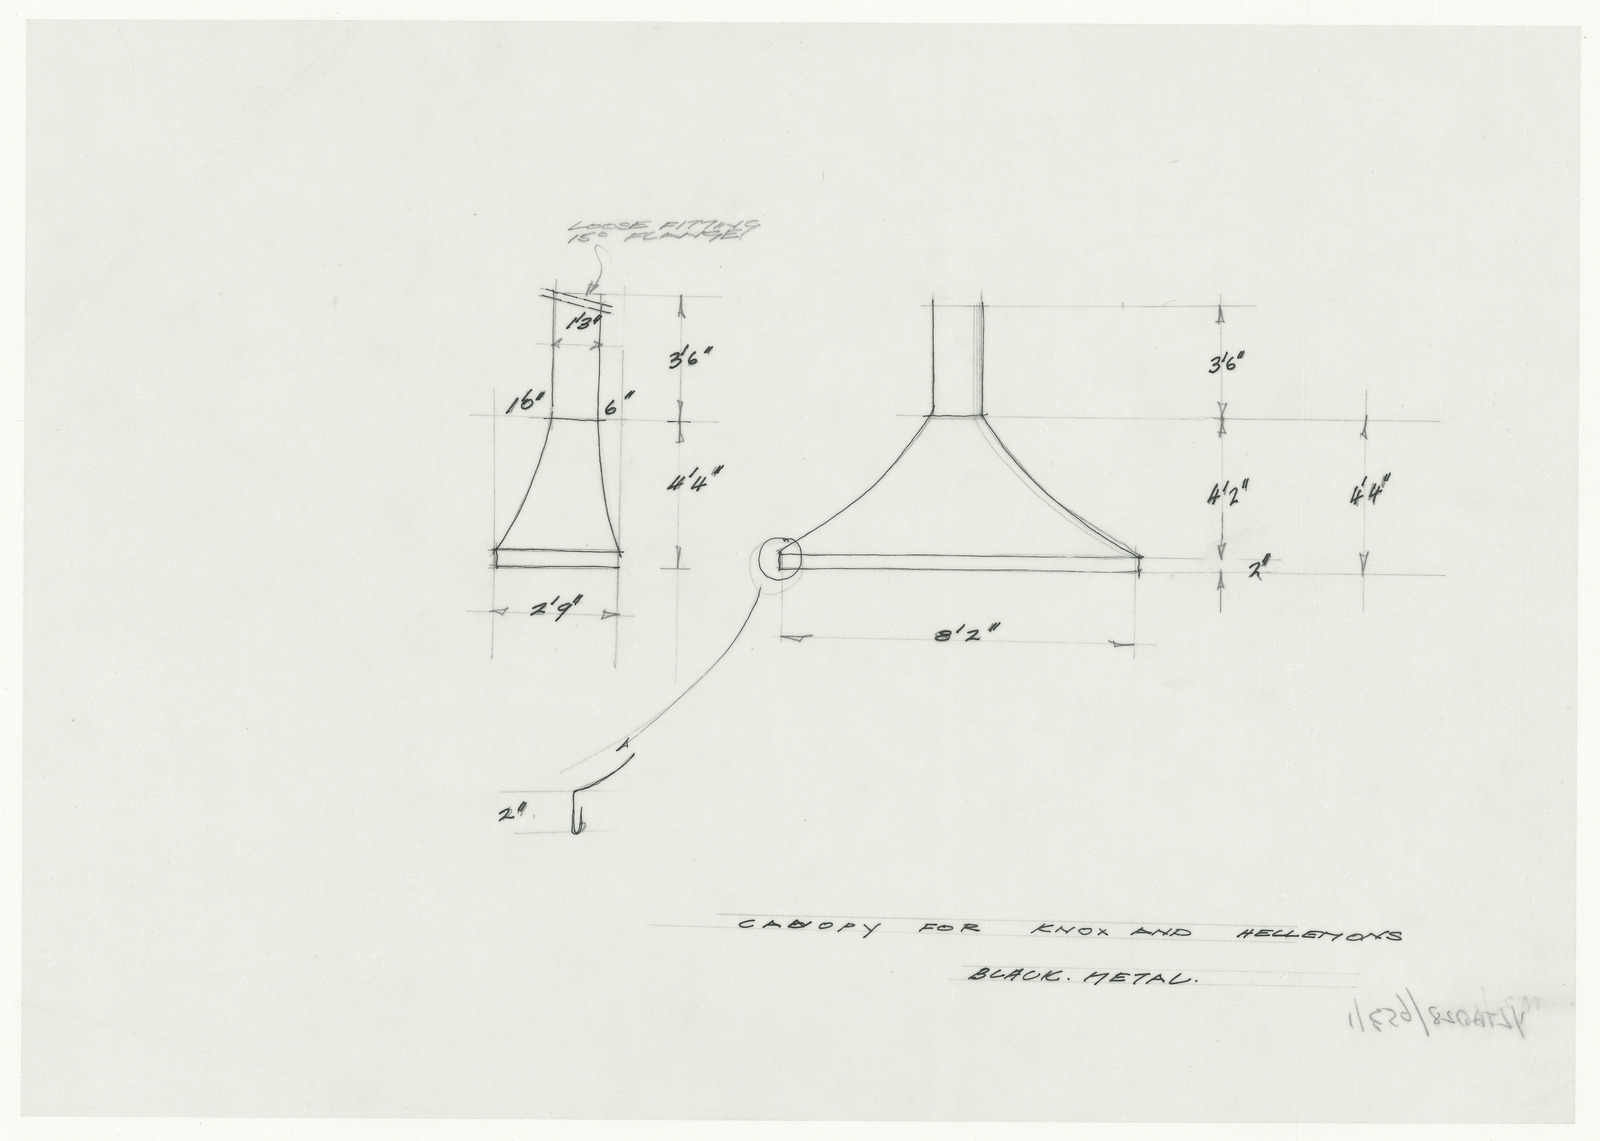 LOOSE FITTING
15° FLANGE!
1'3"
3'6"
6"
4'4"
2'9"
3'6"
4'2"
4'4"
2"
8'2"
2"
CANOPY FOR KNOX AND HELLEMONS
BLACK. METAL.